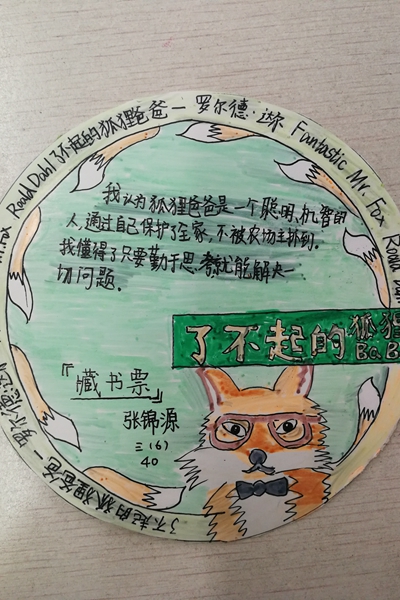 了不起的狐狸爸爸一罗尔德·达尔 Fantastic Mr. Fox Roald Dahl
我认为狐狸爸爸是一个聪明、机智的
人，通过自己保护了全家，不被农场主抓到。
我懂得了只要勤于思考就能解决一
切问题。
了不起的狐狸
Ba B
『藏书票』
张锦源
三（6）
40
了不起的狐狸爸爸一罗尔德·达